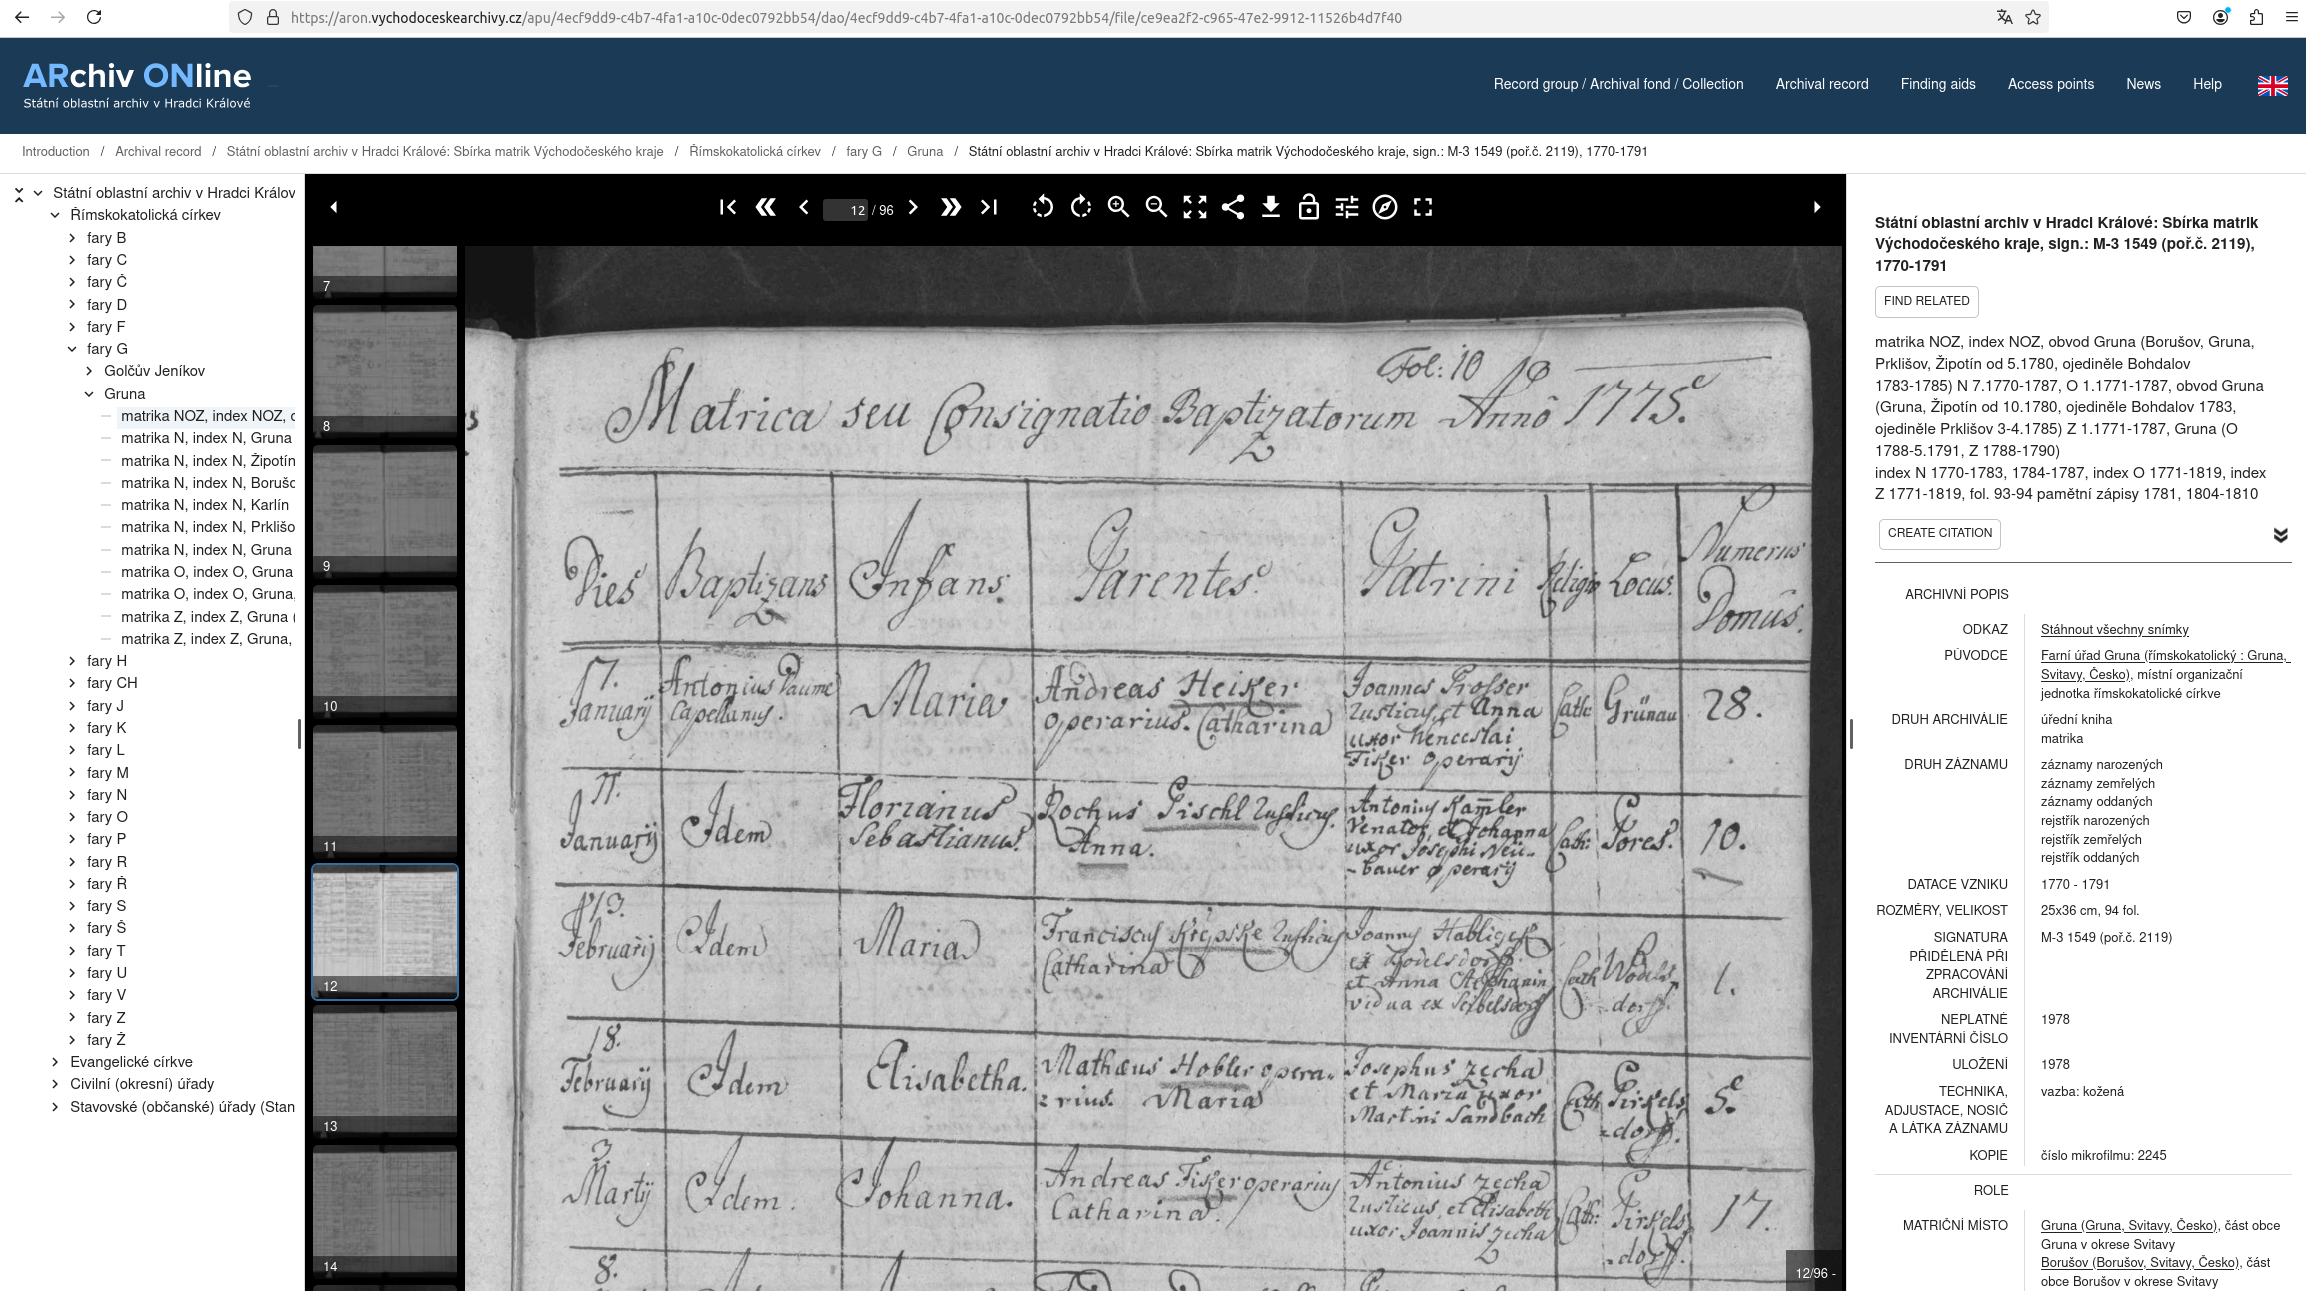 https://aron.vychodoceskearchivy.cz/apu/4ecf9dd9-c4b7-4fa1-a10c-0dec0792bb54/dao/4ecf9dd9-c4b7-4fa1-a10c-0dec0792bb54/file/ce9ea2f2-c965-47e2-9912-11526b4d7f40
ARchiv ONline
Státní oblastní archiv v Hradci Králové
Record group / Archival fond / Collection
Archival record
Finding aids
Access points
News
Help
Introduction / Archival record / Státní oblastní archiv v Hradci Králové: Sbírka matrik Východočeského kraje / Římskokatolická církev / fary G / Gruna / Státní oblastní archiv v Hradci Králové: Sbírka matrik Východočeského kraje, sign.: M-3 1549 (poř.č. 2119), 1770-1791
Státní oblastní archiv v Hradci Králov
Římskokatolická církev
fary B
fary C
fary Č
fary D
fary F
fary G
Golčův Jeníkov
Gruna
matrika NOZ, index NOZ, c
matrika N, index N, Gruna
matrika N, index N, Žipotín
matrika N, index N, Borušc
matrika N, index N, Karlín
matrika N, index N, Prklišo
matrika N, index N, Gruna
matrika O, index O, Gruna
matrika O, index O, Gruna,
matrika Z, index Z, Gruna (
matrika Z, index Z, Gruna,
fary H
fary CH
fary J
fary K
fary L
fary M
fary N
fary P
fary R
fary Ř
fary S
fary Š
fary T
fary U
fary V
fary Z
fary Ž
Evangelické církve
Civilní (okresní) úřady
Stavovské (občanské) úřady (Stan
12 / 96
7
8
9
10
11
12
13
14
Fol: 10
Matrica seu Consignatio Baptizatorum Annô 1775.
Dies Baptizans Infans. Parentes Patrini Religio Locus. Numerus
Domûs.
17. Antonius Maria Andreas Heiker Joannes Prosser Cath: Grünau 28.
Januarij Capellanus. operarius. Catharina rusticus, et Anna
uxor Wenceslai
Fisker operarij
11. Florianus Rochus Pischl rusticus. Antonius Kam̅ler
Januarij Idem Sebastianus. Anna. Venator, et Johanna Cath: Pores. 10.
uxor Josephi Neü-
-bauer operarij
13. Idem Maria Franciscus rusticus Joannes
Februarij Catharina ex 1.
et Anna Cath
vidua ex dorf.
18. Mathæus Hobler opera- Josephus Zecha
Februarij Idem Elisabetha. rius. Maria et Maria uxor Cath Pirkels 5.
Martini Sandbach dorf.
3. Andreas Fisker operarius Antonius Zecha
Martij Idem. Johanna. Catharina. rusticus, et Elisabeth Cath: Pirkels 17.
uxor Joannis Zecha dorf.
8.
12/96 -
Státní oblastní archiv v Hradci Králové: Sbírka matrik
Východočeského kraje, sign.: M-3 1549 (poř.č. 2119),
1770-1791
FIND RELATED
matrika NOZ, index NOZ, obvod Gruna (Borušov, Gruna,
Prklišov, Žipotín od 5.1780, ojediněle Bohdalov
1783-1785) N 7.1770-1787, O 1.1771-1787, obvod Gruna
(Gruna, Žipotín od 10.1780, ojediněle Bohdalov 1783,
ojediněle Prklišov 3-4.1785) Z 1.1771-1787, Gruna (O
1788-5.1791, Z 1788-1790)
index N 1770-1783, 1784-1787, index O 1771-1819, index
Z 1771-1819, fol. 93-94 pamětní zápisy 1781, 1804-1810
CREATE CITATION
ARCHIVNÍ POPIS
ODKAZ Stáhnout všechny snímky
PŮVODCE Farní úřad Gruna (římskokatolický : Gruna,
Svitavy, Česko), místní organizační
jednotka římskokatolické církve
DRUH ARCHIVÁLIE úřední kniha
matrika
DRUH ZÁZNAMU záznamy narozených
záznamy zemřelých
záznamy oddaných
rejstřík narozených
rejstřík zemřelých
rejstřík oddaných
DATACE VZNIKU 1770 - 1791
ROZMĚRY, VELIKOST 25x36 cm, 94 fol.
SIGNATURA M-3 1549 (poř.č. 2119)
PŘIDĚLENÁ PŘI
ZPRACOVÁNÍ
ARCHIVÁLIE
NEPLATNÉ 1978
INVENTÁRNÍ ČÍSLO
ULOŽENÍ 1978
TECHNIKA, vazba: kožená
ADJUSTACE, NOSIČ
A LÁTKA ZÁZNAMU
KOPIE číslo mikrofilmu: 2245
ROLE
MATRIČNÍ MÍSTO Gruna (Gruna, Svitavy, Česko), část obce
Gruna v okrese Svitavy
Borušov (Borušov, Svitavy, Česko), část
obce Borušov v okrese Svitavy